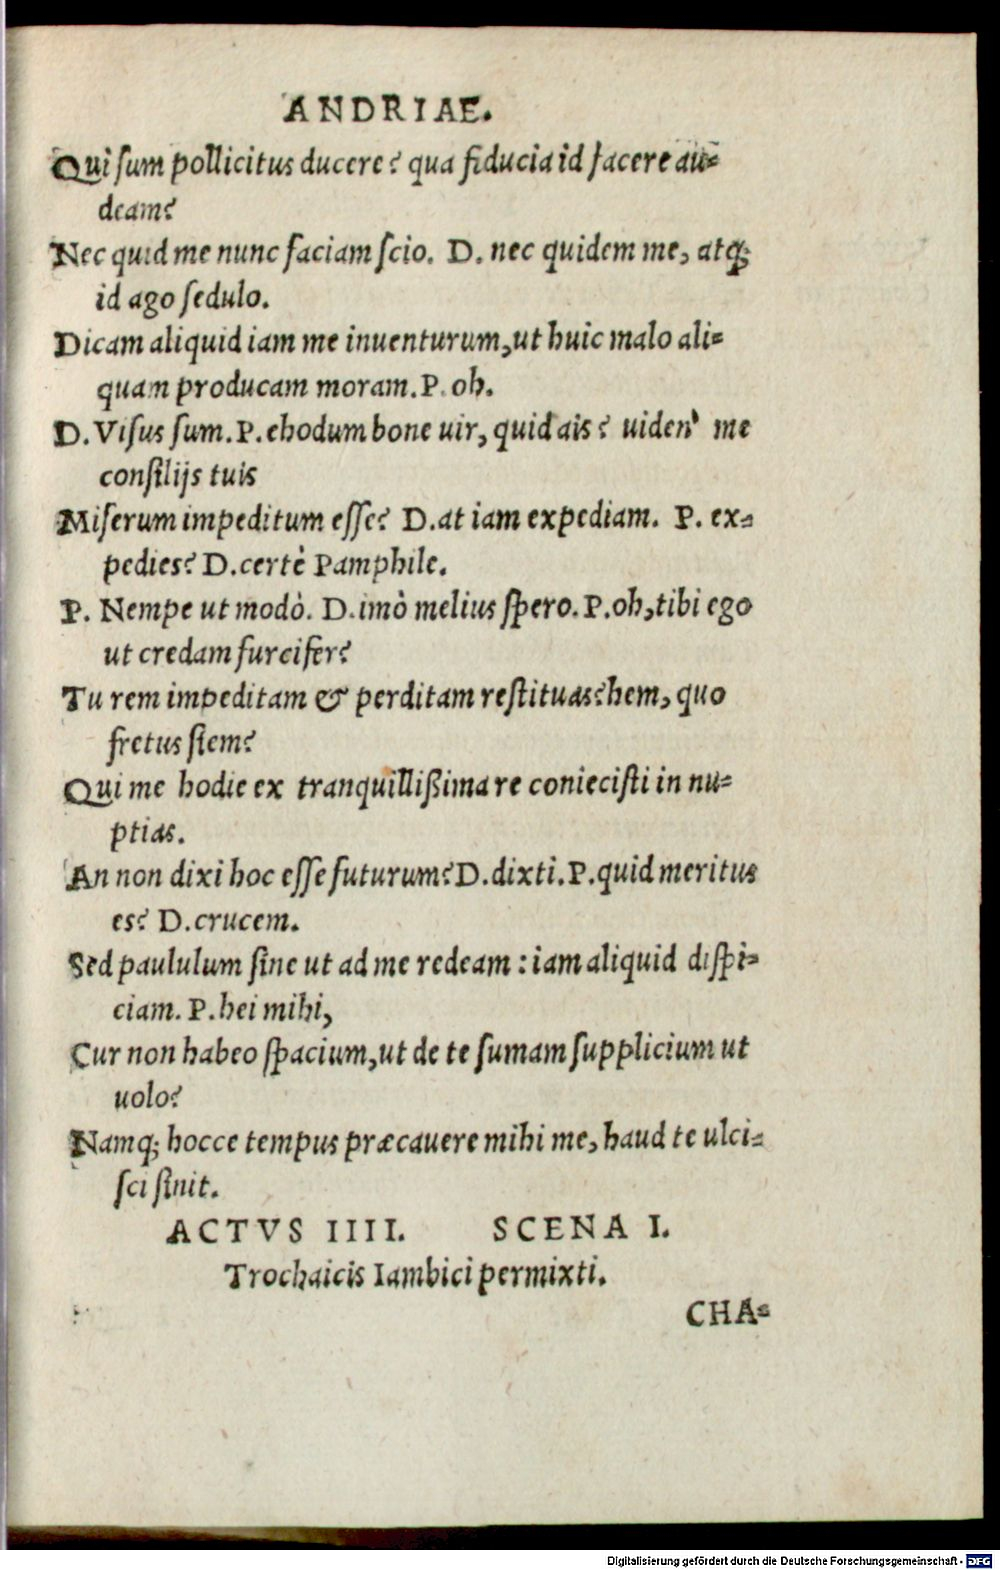 ANDRIAE.
Qui sum pollicitus ducere? qua fiducia id facere au-
deam?
Nec quid me nunc faciam scio. D. nec quidem me, atq;
id ago sedulo.
Dicam aliquid iam me inuenturum, ut huic malo ali-
quam producam moram. P. oh.
D. Visus sum. P. ehodum bone uir, quid ais? uiden' me
consilijs tuis
Miserum impeditum esse? D. at iam expediam. P. ex-
pedies? D. certè Pamphile.
P. Nempe ut modò. D. imò melius spero. P. oh, tibi ego
ut credam furcifer?
Tu rem impeditam & perditam restituas? hem, quo
fretus siem?
Qui me hodie ex tranquillißima re coniecisti in nu-
ptias.
An non dixi hoc esse futurum? D. dixti. P. quid meritus
es? D. crucem.
Sed paululum sine ut ad me redeam : iam aliquid dispi-
ciam. P. hei mihi,
Cur non habeo spacium, ut de te sumam supplicium ut
uolo?
Namq; hocce tempus præcauere mihi me, haud te ulci-
sci sinit.
ACTVS IIII. SCENA I.
Trochaicis Iambici permixti.
CHA-
Digitalisierung gefördert durch die Deutsche Forschungsgemeinschaft - DFG